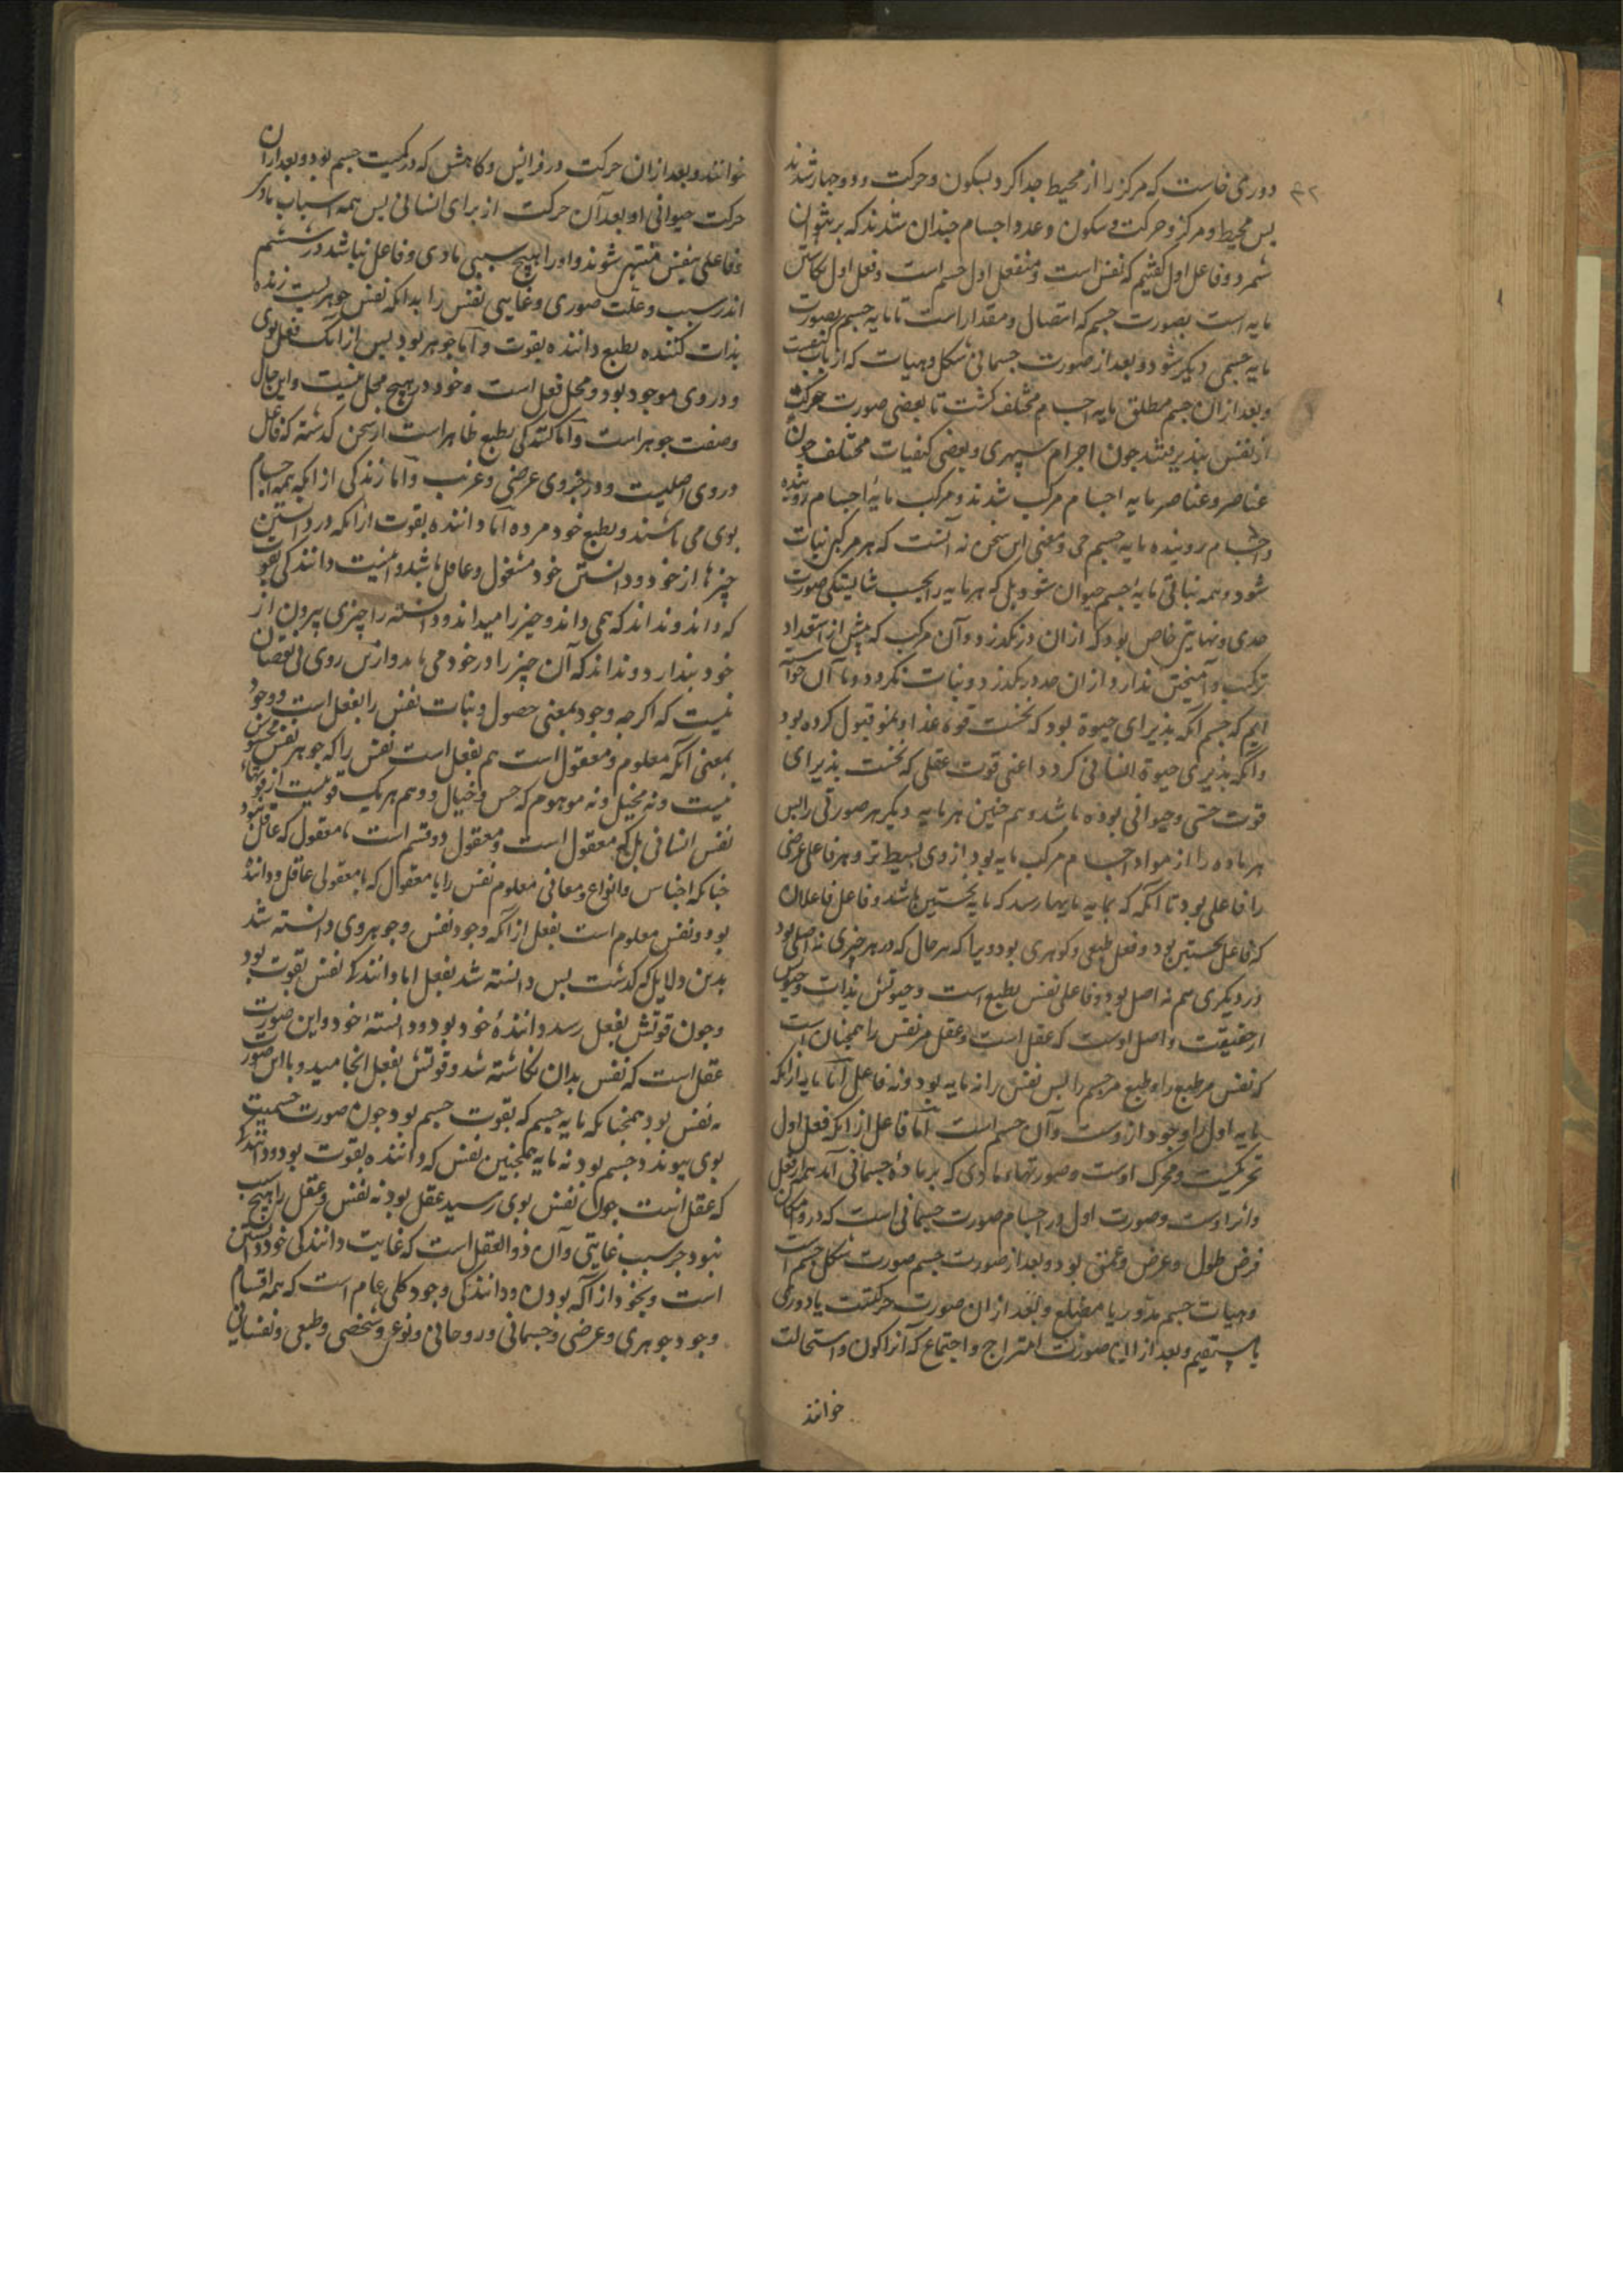 ۴۲
دوری خاست که مرکز را از محیط جدا کرد بسکون و حرکت و دو جهار شدند
بس محیط و مرکز و حرکت و سکون و عدد اجسام جندان شدند که بر نتوان
شمرد و فاعل اول کفتیم که نفس است و منفعل اول جسم است و فعل اول نکاشتن
مایه است بصورت جسم که اتصال و مقدار است تا مایه جسم بصورت
مایه جسمی دیکر شود و بعد از صورت جسمانی شکل و هیات که از باب کیفیت
و بعد از ان جسم مطلق مایه اجسام مختلف کشت تا بعضی صورت حرکت
از نفس بپذیرفتند جون اجرام سپهری و بعضی کیفیات مختلف جون
عناصر و عناصر مایه اجسام مرکب شدند و مرکب مایهٔ اجسام روینده
و اجسام روینده مایه جسم حی و معنی این سخن نه آنست که هر مرکبی نبات
شود و همه نباتی مایهٔ جسم حیوان شود بل که هر مایه را بحسب شایستکی صورت
حدی و نهایتی خاص بود که از ان در نکذرد و آن مرکب که بیش از استعداد
ترکیب و آمیختن ندارد از ان حد در نکذرد و نبات نکردد و ما آن خواسته
ایم که جسم آنکه بذیرای حیوة بود که نخست قوه غذا و نمو قبول کرده بود
و آنکه بذیرای حیوة انسانی کردد اعنی قوت عقلی که نخست بذیرای
قوت حسی و حیوانی بوده باشد و هم جنین هر مایه دیکر هر صورتی را بس
هر ماده را از مواد اجسام مرکب مایه بود از وی بسیط تر و هر فاعل عرضی
را فاعلی بود تا آنکه که بمایه مایها رسد که مایه نخستین باشد و فاعل فاعلان
که فاعل نخستین بود و فعل طبعی و کوهری بود زیرا که هر حال که در هر جیزی نه اصلی بود
در دیکری هم نه اصل بود و فاعلی نفس بطبع است و حیوتش بذات و حیوتش
از حقیقت و اصل اوست که عقل است و عقل مر نفس را همجنان است
که نفس مر طبع را و طبع مر جسم را بس نفس را نه مایه بود و نه فاعل اما مایه از انکه
مایه اول را وجود از وست و آن جسم است اما فاعل از انکه فعل اول
تحریکست و محرک اوست و صورتهاء مادی که بر مادهٔ جسمانی آند همه از فعل
و اثر اوست و صورت اول در اجسام صورت جسمانی است که در و امکان
فرض طول و عرض و عمق بود و بعد از صورت جسم صورت شکل جسم است
و هیات جسم مدور یا مضلع و بعد از ان صورت حرکتست یا دوری
یا مستقیم و بعد از ان صورت امتزاج و اجتماع که آنرا کون و استحالت
خوانند
خوانند و بعد از ان حرکت در فزایش و کاهش که در کمیت جسم بود و بعد از ان
حرکت حیوانی و بعد آن حرکت از برای انسانی بس همه اسباب مادی
و فاعلی بنفس منتهی شوند و او را هیچ سببی مادی و فاعل نباشد در ششم
اندر سبب و علت صوری و غایی نفس را بدانکه نفس جوهریست زنده
بذات کننده بطبع داننده بقوت و اما جوهر بود بس از انک فعل بوی
و در وی موجود بود و محل فعل است و خود در هیچ محل نیست و این حال
و صفت جوهر است و اما کنندکی بطبع ظاهر است از سخن کذشته که فاعل
در وی اصلیست و در جز وی عرضی و غریب و اما زندکی از انکه همه اجسام
بوی می باشند و بطبع خود مرده اما داننده بقوت از انکه در دانستن
جیزها از خود و دانستن خود مشغول و غافل باشد و اینست دانندکی بقوت
که داند و نداند که همی داند و جیز را میداند و دانسته را جیزی بیرون از
خود بندارد و نداند که آن جیز را در خود می یابد و ازین روی بی نقصان
نیست که اکر جه وجود بمعنی حصول و ثبات نفس را بفعل است و وجود
بمعنی آنکه معلوم و معقول است هم بفعل است نفس را که جوهر نفس محسوس
نیست و نه مخیل و نه موهوم که حس و خیال و وهم هر یک قوتیست از قوتهاء
نفس انسانی بل که معقول است و معقول دو قسم است یا معقول که عاقل نبود
جنانکه اجناس و انواع و معانی معلوم نفس را یا معقول که با معقولی عاقل و داننده
بود و نفس معلوم است بفعل از انکه وجود نفس و جوهر وی دانسته شد
بدین دلایل که کذشت بس دانسته شد بفعل اما دانندکی نفس بقوت بود
و جون قوتش بفعل رسد دانندهٔ خود بود و دانستهٔ خود و این صورت
عقل است که نفس بدان نکاشته شد و قوتش بفعل انجامید و با این صورت
نه نفس بود همجنانکه مایه جسم که بقوت جسم بود جون صورت جسمیت
بوی بیوندد جسم بود نه مایه همجنین نفس که داننده بقوت بود و دانندکی
که عقل است جون نفس بوی رسید عقل بود نه نفس و عقل را هیچ سبب
نبود جز سبب غایتی و آن ذو العقل است که غایت دانندکی خود دانستن
است و بخود از آکه بودن و دانندکی وجود کلی عام است که همه اقسام
وجود جوهری و عرضی و جسمانی و روحانی و نوعی و شخصی و طبعی و نفسانی